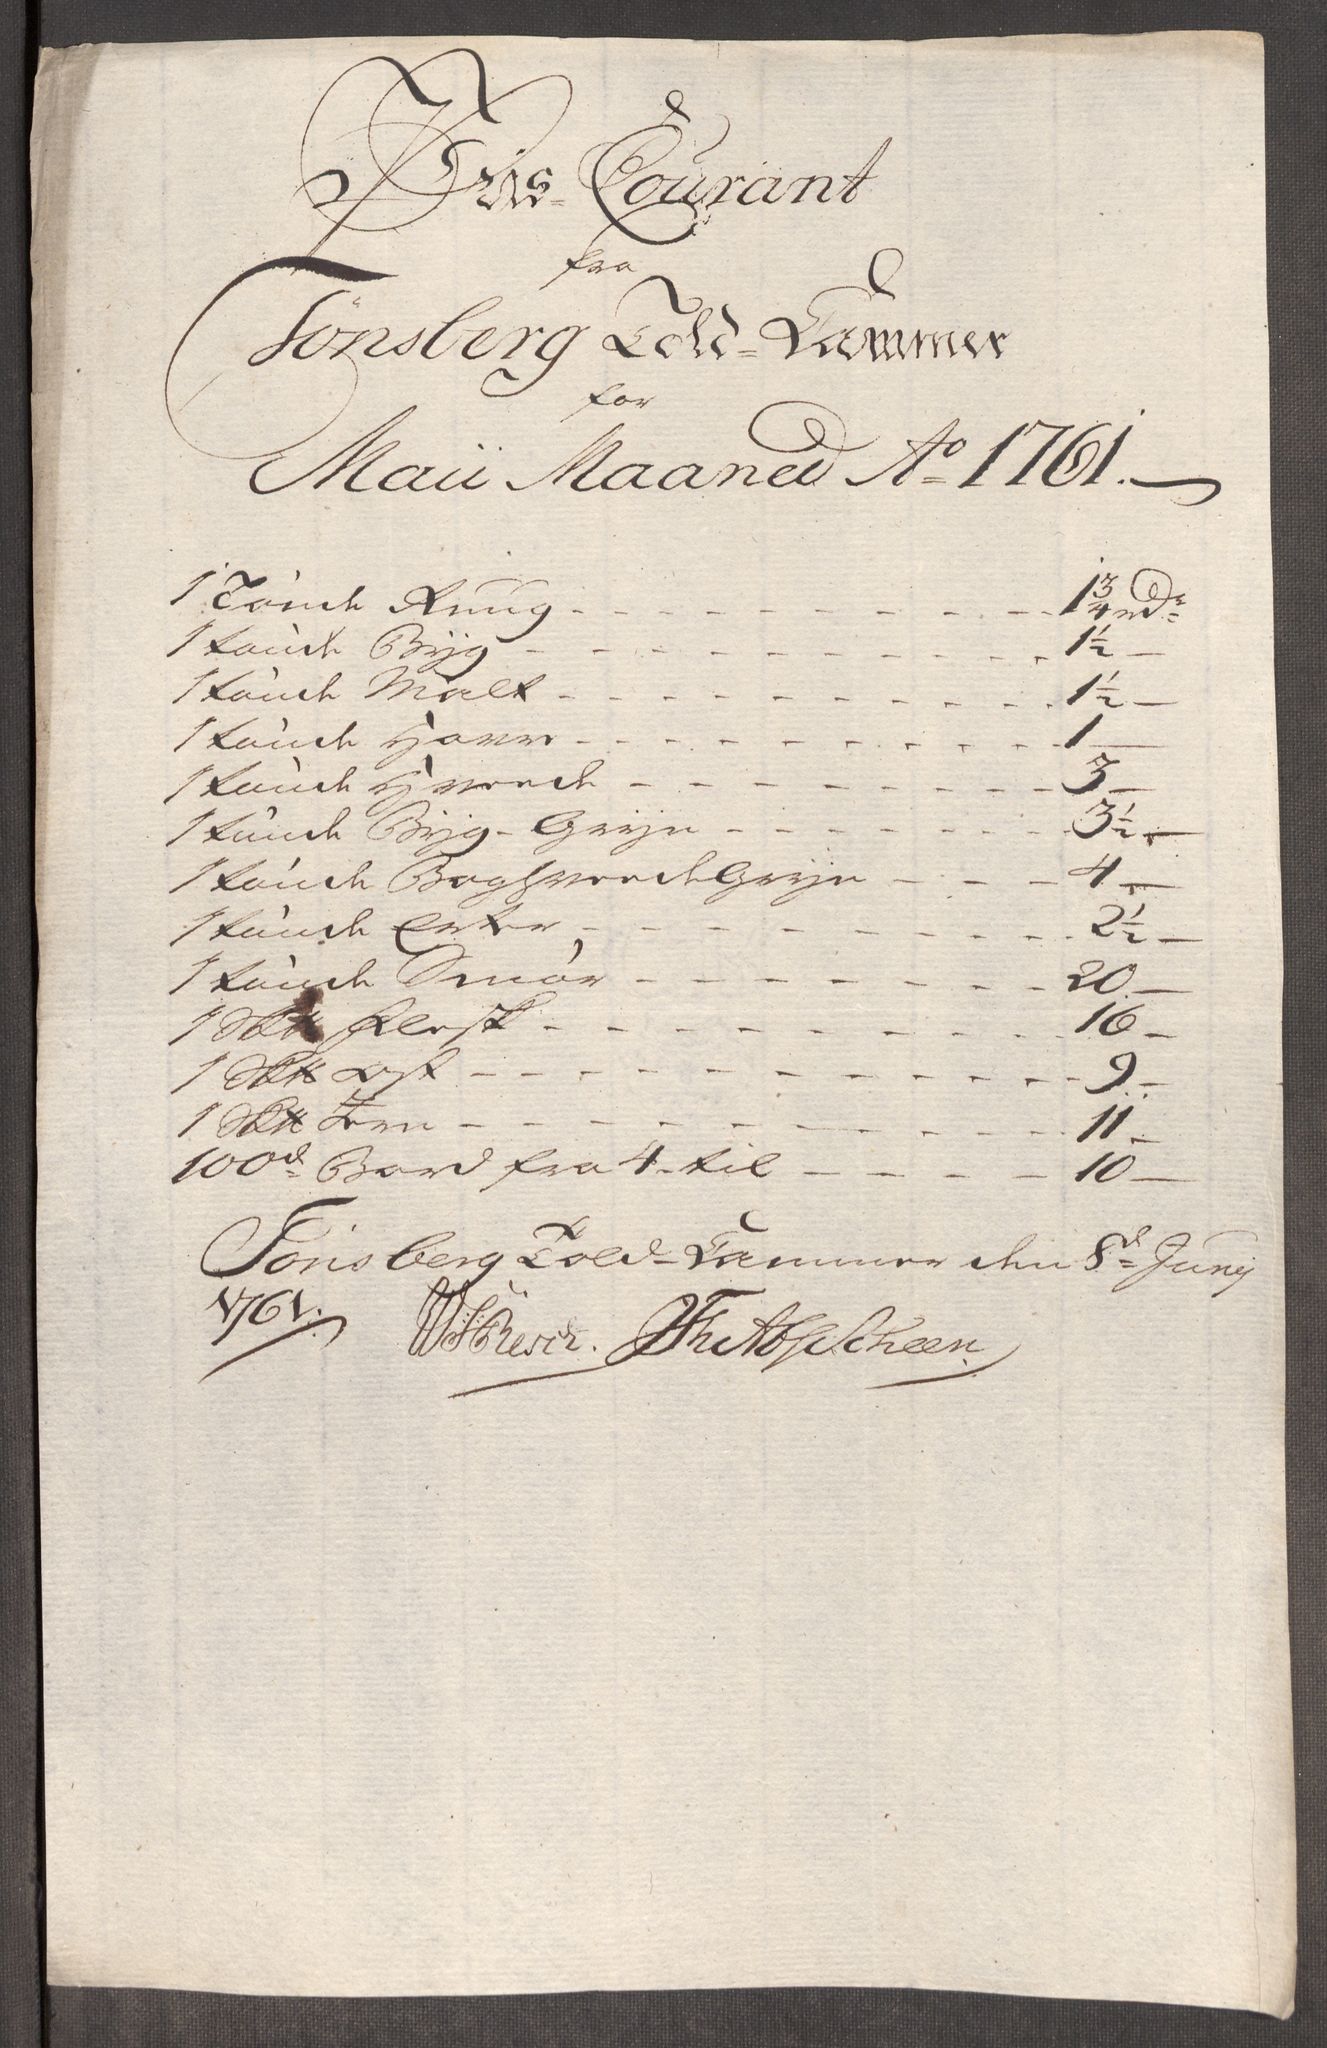 Priis-Courant
fra
Tönsberg Told-Cammer
for
Maii Maaned Ao 1761.
1 Tönde Ruug - - - 1 3/4 rdr
1 tönde Byg - - - 1 1/2 —
1 tönde Malt - - - 1 1/2 —
1 tönde Havre - - - 1 —
1 tönde Hveede - - - 3 —
1 tönde Byg-Gryn - - - 3 1/2 —
1 tönde BoghveedeGryn - - - 4 —
1 tönde Erter - - - 2 1/2 —
1 tönde Smör - - - 20 —
1 Sk℔ Flesk - - - 16 —
1 Sk℔ Ost - - - 9 —
1 Sk℔ Jern - - - 11 —
100d Bord fra 4 til - - - 10 —
Tönsberg Told-Cammer den 8d Junij
1761.